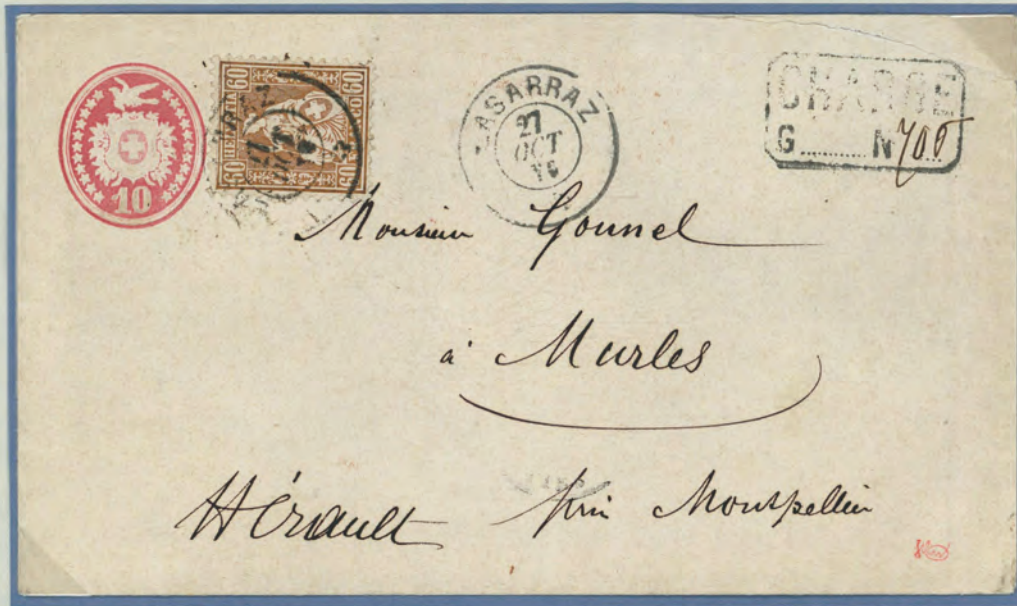 10
HELVETIA
60
60
60
FRANCO
LASARRAZ
27
OCT
CHARGÉ
G......... N 706
Monsieur Gounel
à Murles
Hérault près Montpellier